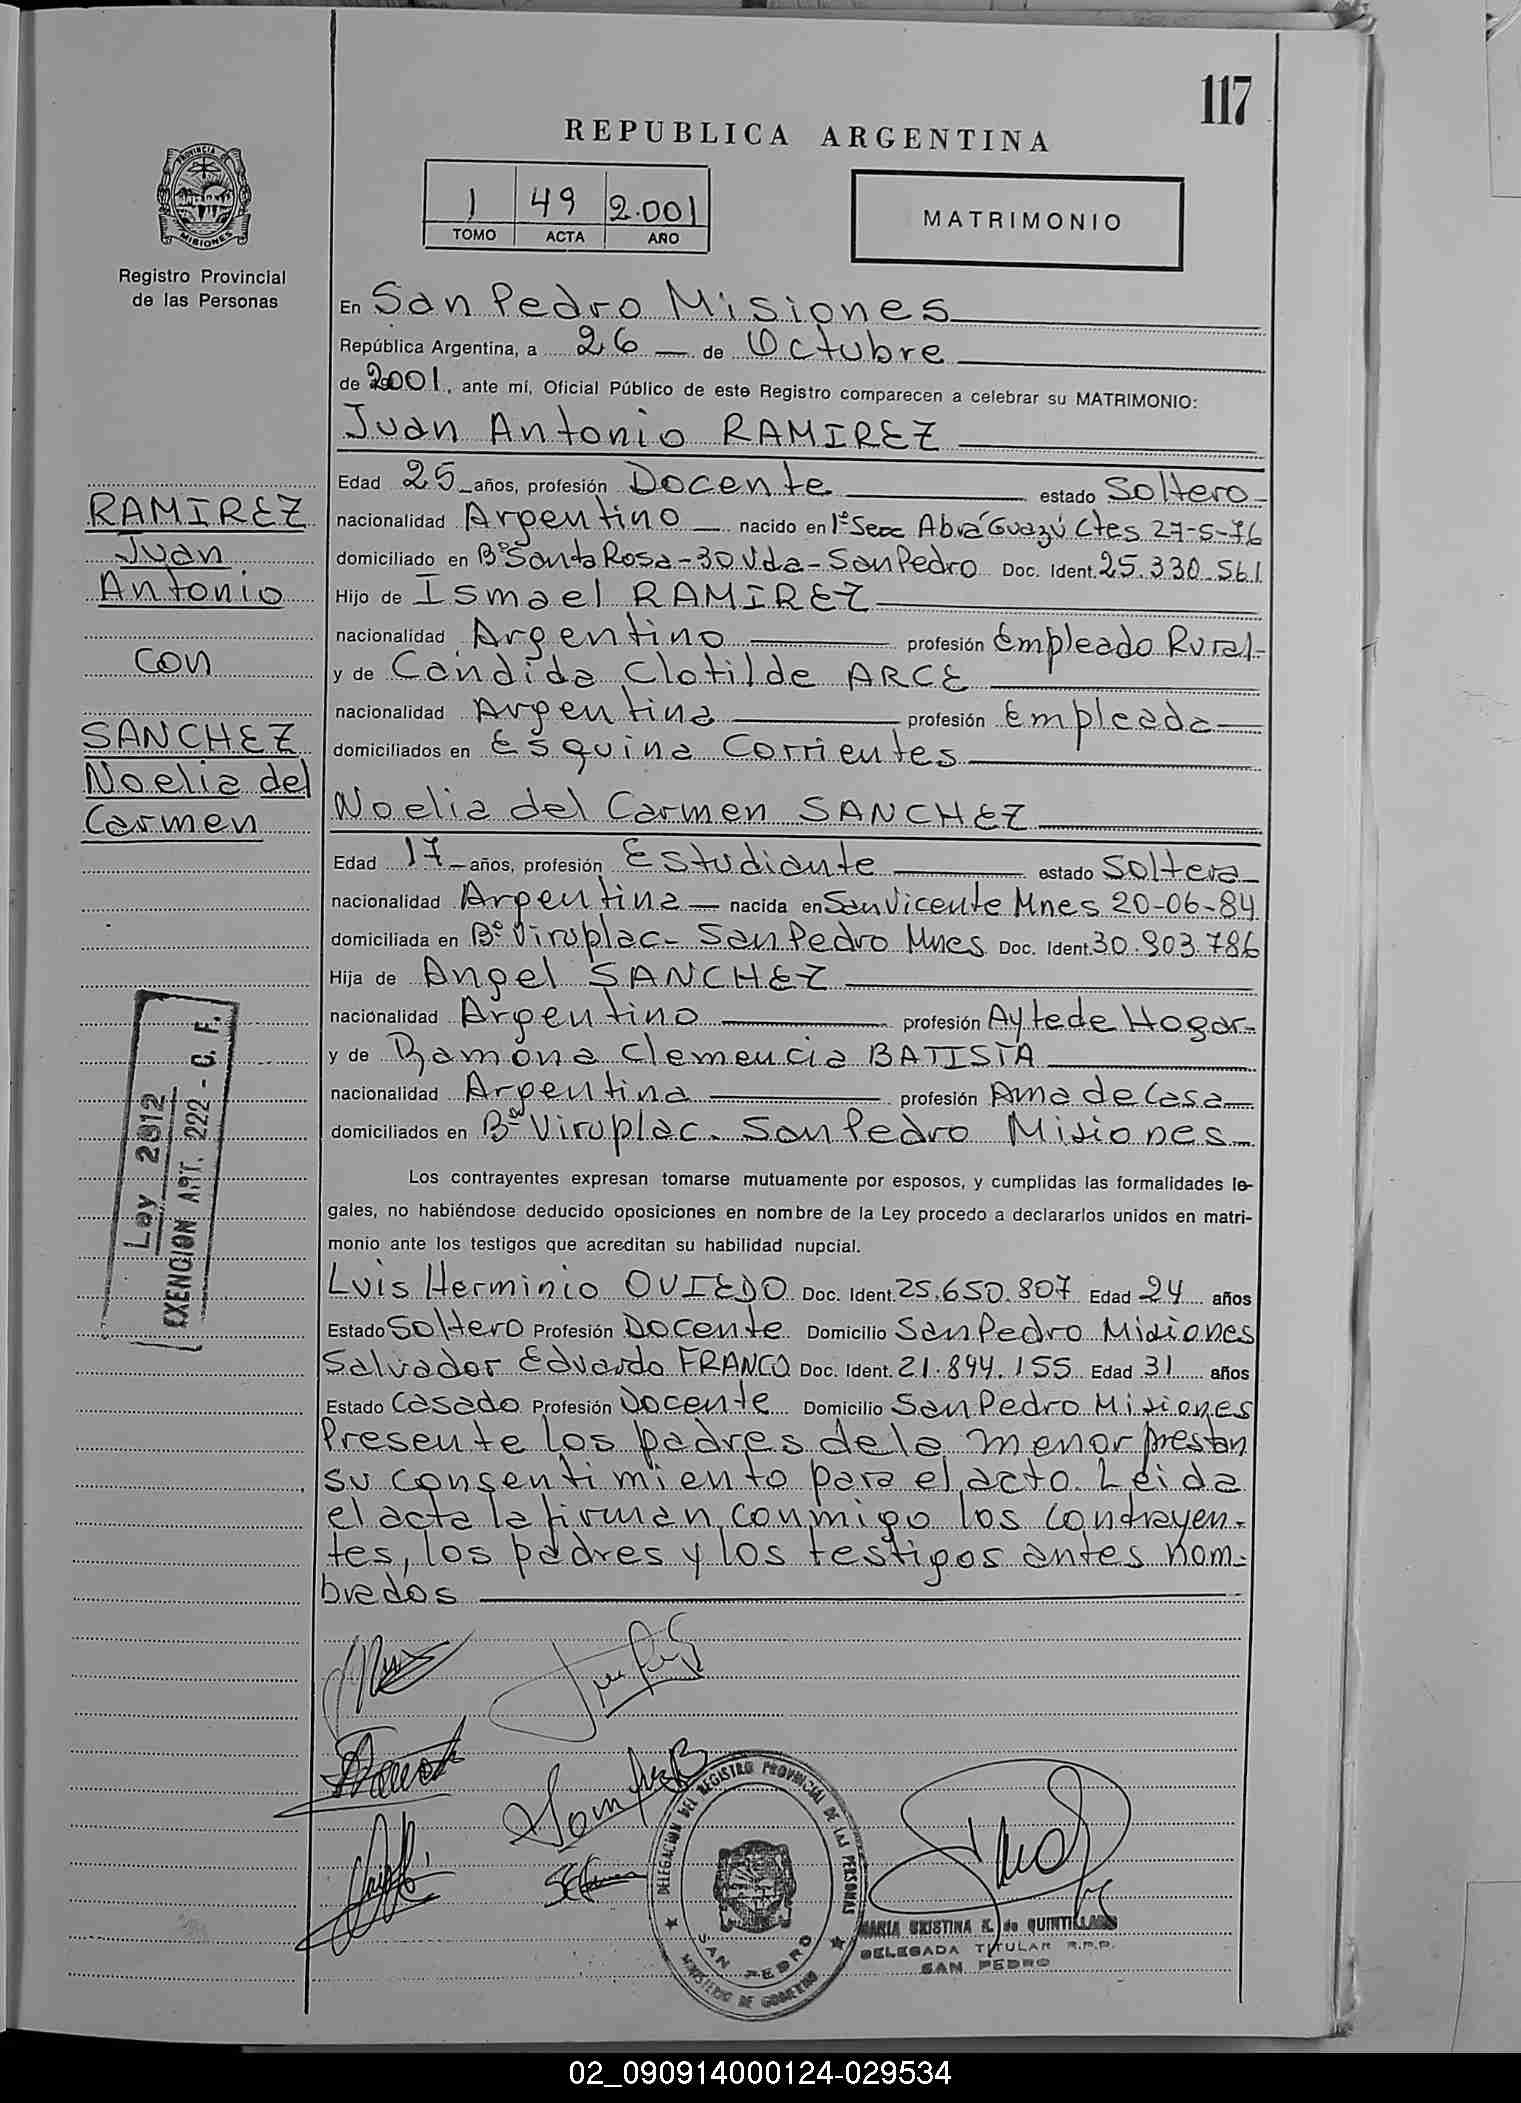 117
REPUBLICA ARGENTINA
1 49 2.001
TOMO ACTA AÑO
MATRIMONIO
PROVINCIA DE
MISIONES
Registro Provincial
de las Personas
En San Pedro Misiones
República Argentina, a 26 de Octubre
de 2001, ante mí, Oficial Público de este Registro comparecen a celebrar su MATRIMONIO:
Juan Antonio RAMIREZ
Edad 25 años, profesión Docente estado Soltero
nacionalidad Argentino nacido en 1ª Secc Abra Guazú Ctes 27-5-76
domiciliado en Bº Santa Rosa-30 Vda-San Pedro Doc. Ident. 25.330.561
Hijo de Ismael RAMIREZ
nacionalidad Argentino profesión Empleado Rural
y de Candida Clotilde ARCE
nacionalidad Argentina profesión Empleada
domiciliados en Esquina Corrientes
Noelia del Carmen SANCHEZ
Edad 17 años, profesión Estudiante estado Soltera
nacionalidad Argentina nacida en San Vicente Mnes 20-06-84
domiciliada en Bº Viruplac- San Pedro Mnes Doc. Ident. 30.903.786
Hija de Angel SANCHEZ
nacionalidad Argentino profesión Ayte de Hogar
y de Ramona Clemencia BATISTA
nacionalidad Argentina profesión Ama de Casa
domiciliados en Bº Viruplac. San Pedro Misiones
Los contrayentes expresan tomarse mutuamente por esposos, y cumplidas las formalidades le-
gales, no habiéndose deducido oposiciones en nombre de la Ley procedo a declararlos unidos en matri-
monio ante los testigos que acreditan su habilidad nupcial.
Luis Herminio OVIEDO Doc. Ident. 25.650.807 Edad 24 años
Estado Soltero Profesión Docente Domicilio San Pedro Misiones
Salvador Eduardo FRANCO Doc. Ident. 21.894.155 Edad 31 años
Estado Casado Profesión Docente Domicilio San Pedro Misiones
Presente los padres de la menor prestan
su consentimiento para el acto. Leida
el acta la firman conmigo los contrayen-
tes, los padres y los testigos antes nom-
brados
RAMIREZ
Juan
Antonio
con
SANCHEZ
Noelia del
Carmen
Ley 2812
EXENCION ART. 222 - C. F.
DELEGACION DEL REGISTRO PROVINCIAL DE LAS PERSONAS
SAN PEDRO
MINISTERIO DE GOBIERNO
MARIA CRISTINA K. de QUINTILLANO
DELEGADA TITULAR R.P.P.
SAN PEDRO
02_090914000124-029534